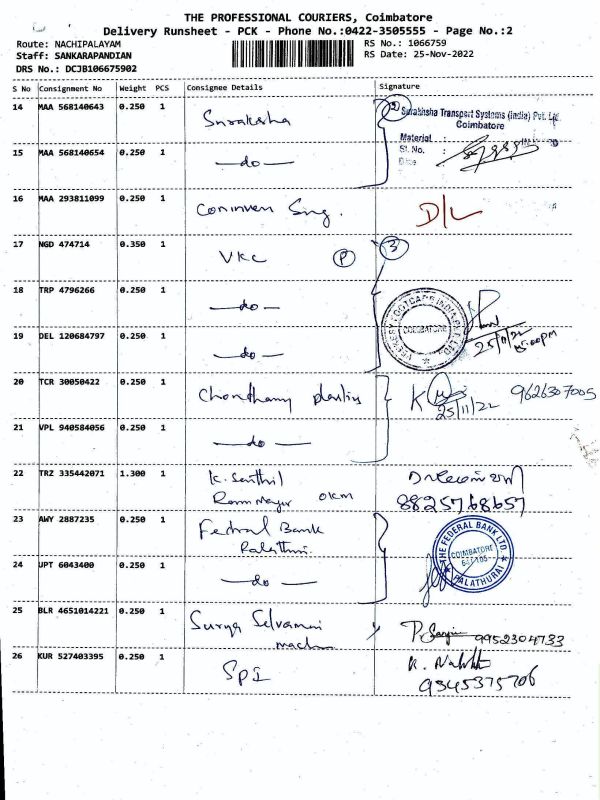 THE PROFESSIONAL COURIERS, Coimbatore
Delivery Runsheet - PCK - Phone No.:0422-3505555 - Page No.:2
Route: NACHIPALAYAM
Staff: SANKARAPANDIAN
DRS No.: DCJB106675902
RS No.: 1066759
RS Date: 25-Nov-2022
S No Consignment No Weight PCS Consignee Details Signature
14 MAA 568140643 0.250 1 Suraksha 2
Suraksha Transport Systems (India) Pvt. Ltd.
Coimbatore
Material :
Sl. No. :
Date :
15 MAA 568140654 0.250 1 —do—
16 MAA 293811099 0.250 1 D/L
17 NGD 474714 0.350 1 VKC P 3
18 TRP 4796266 0.250 1 —do—
COIMBATORE
25/11/22
19 DEL 120684797 0.250 1 —do—
20 TCR 30050422 0.250 1 K 9626307005
25/11/22
21 VPL 940584056 0.250 1 —do—
22 TRZ 335442071 1.300 1 K. Senthil
88257 68657
23 AWY 2887235 0.250 1 Fedral Bank
THE FEDERAL BANK LTD.
COIMBATORE
PALATHURAI
24 UPT 6043400 0.250 1 —do—
25 BLR 4651014221 0.250 1 Surya Selvamani 9952304733
26 KUR 527403395 0.250 1 SPI
9345375706